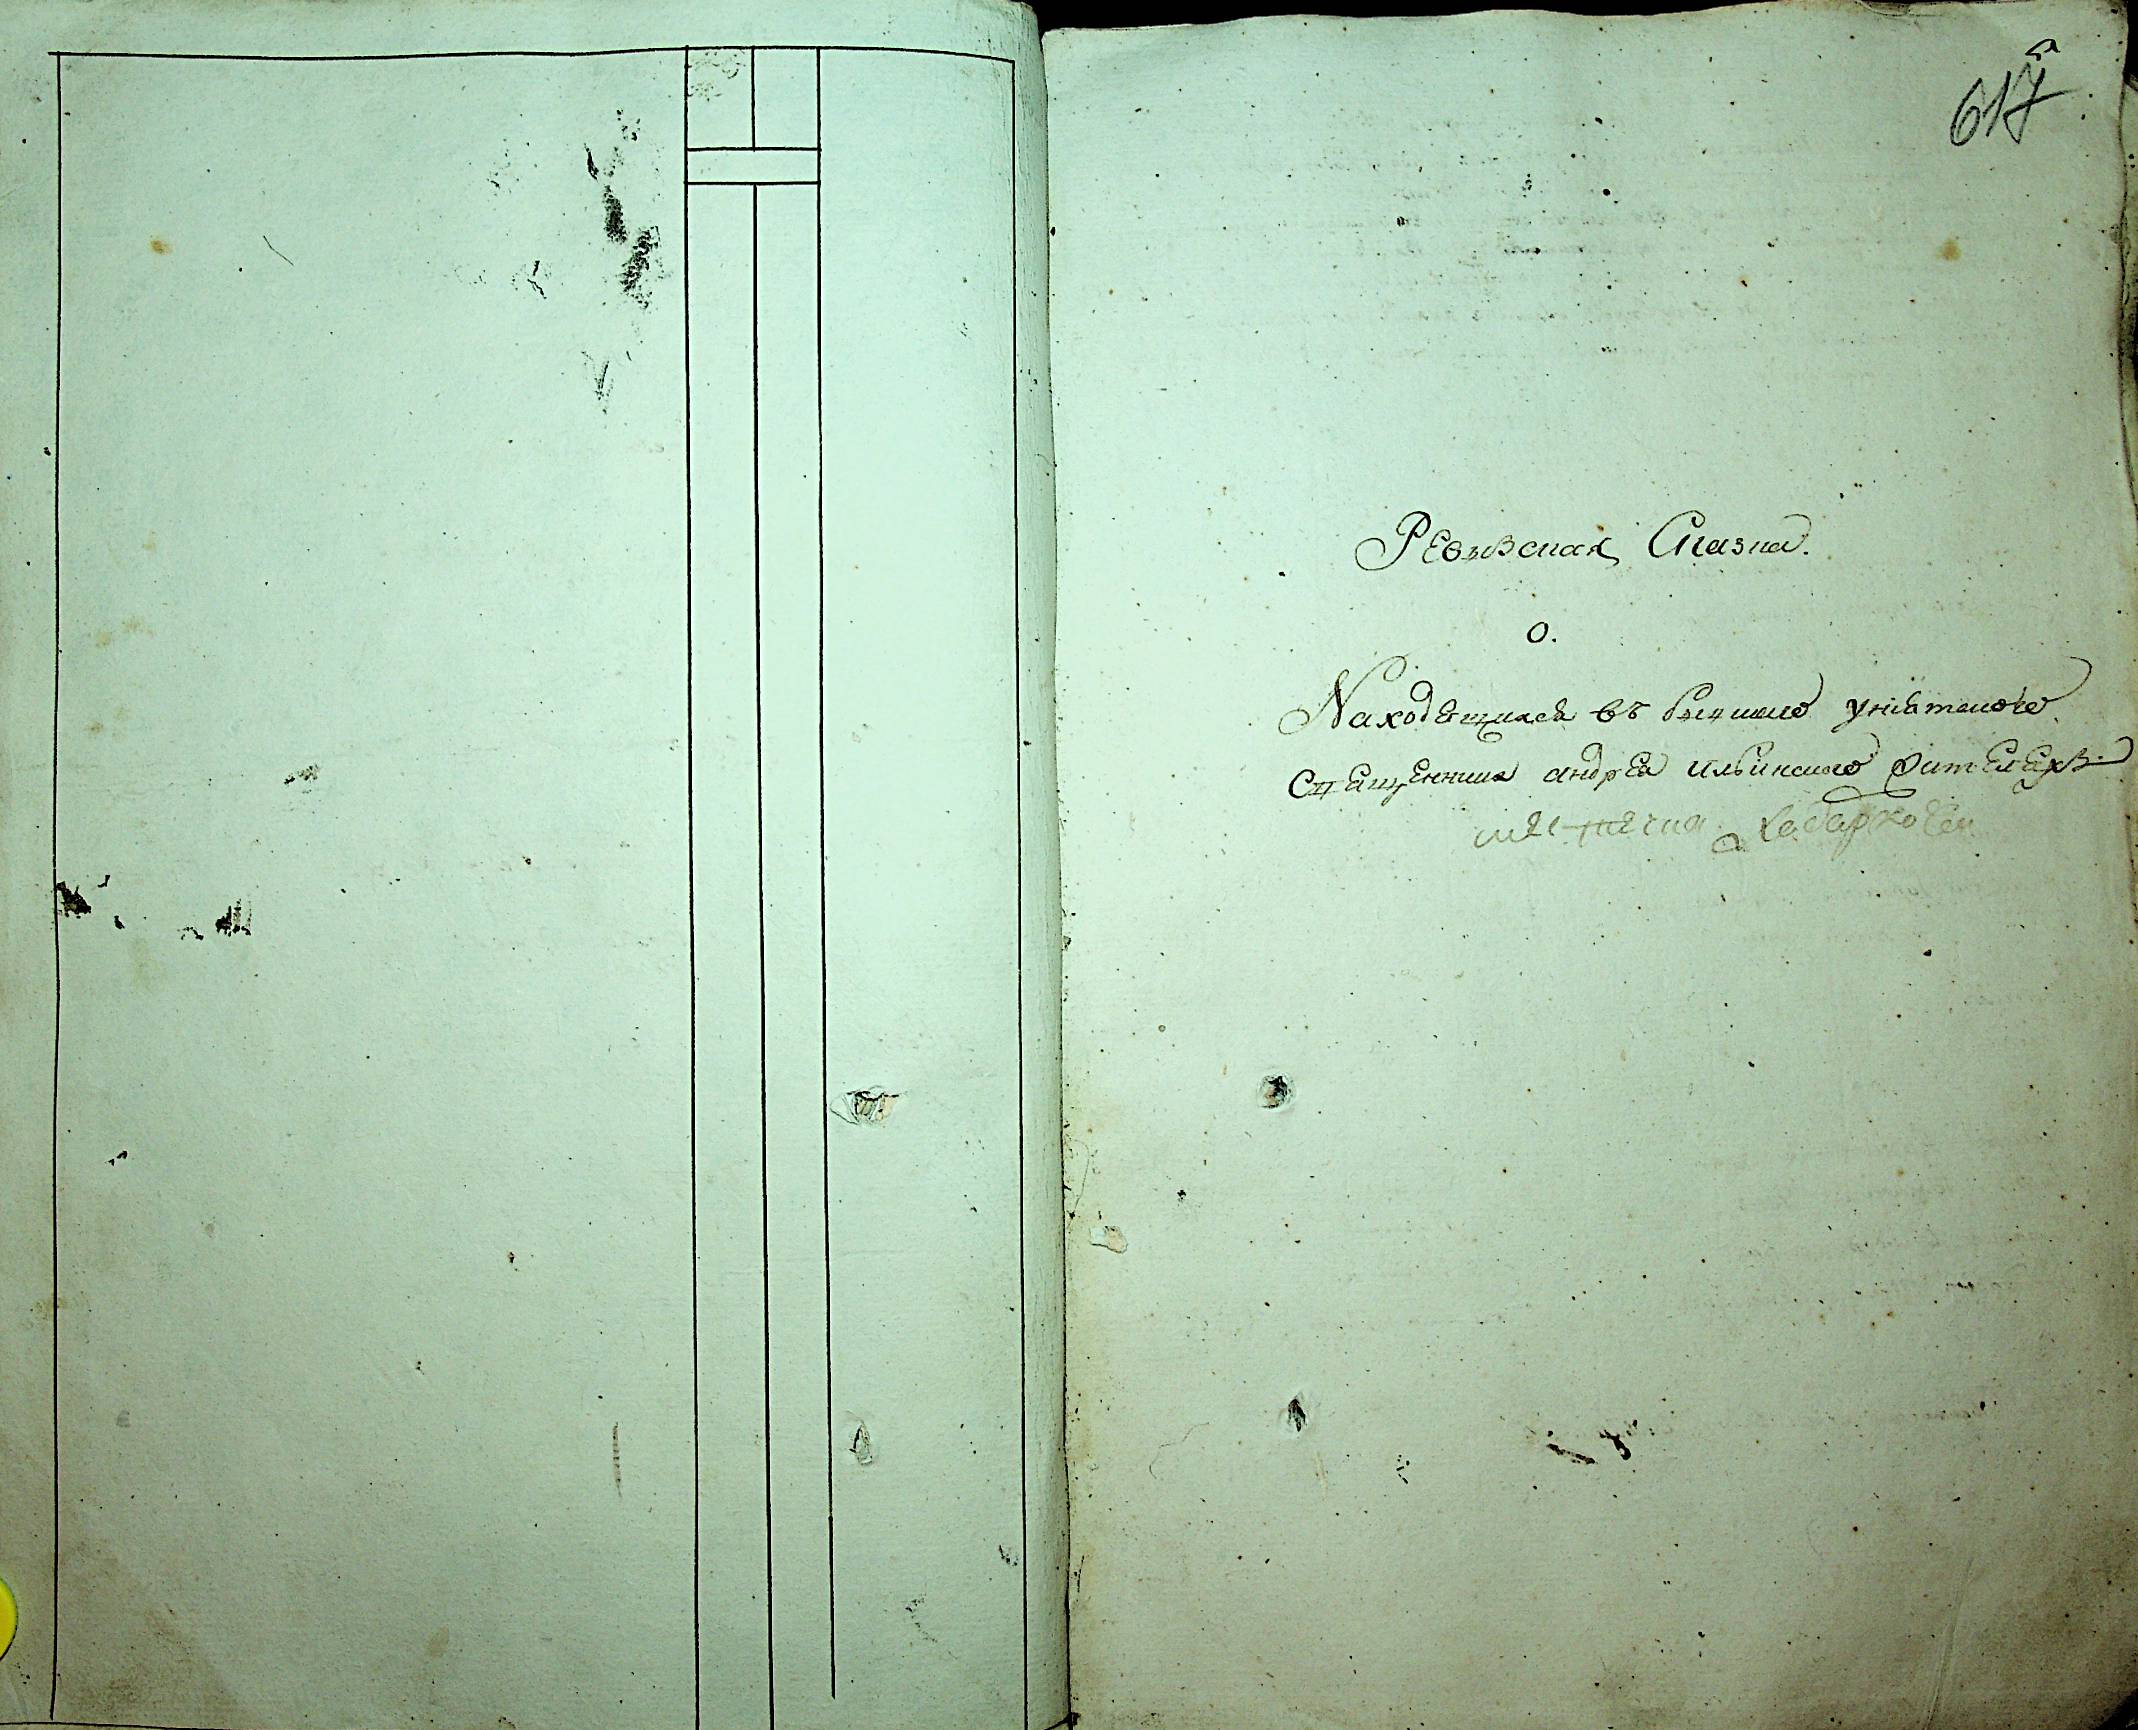 617
Ревизская Сказка.
о.
Находящихся въ бывшаго унiятскаго
священника андрея ильинскаго жителехъ
местечка